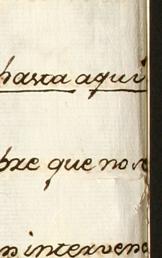 hasta aqui
bre que no s
n interven